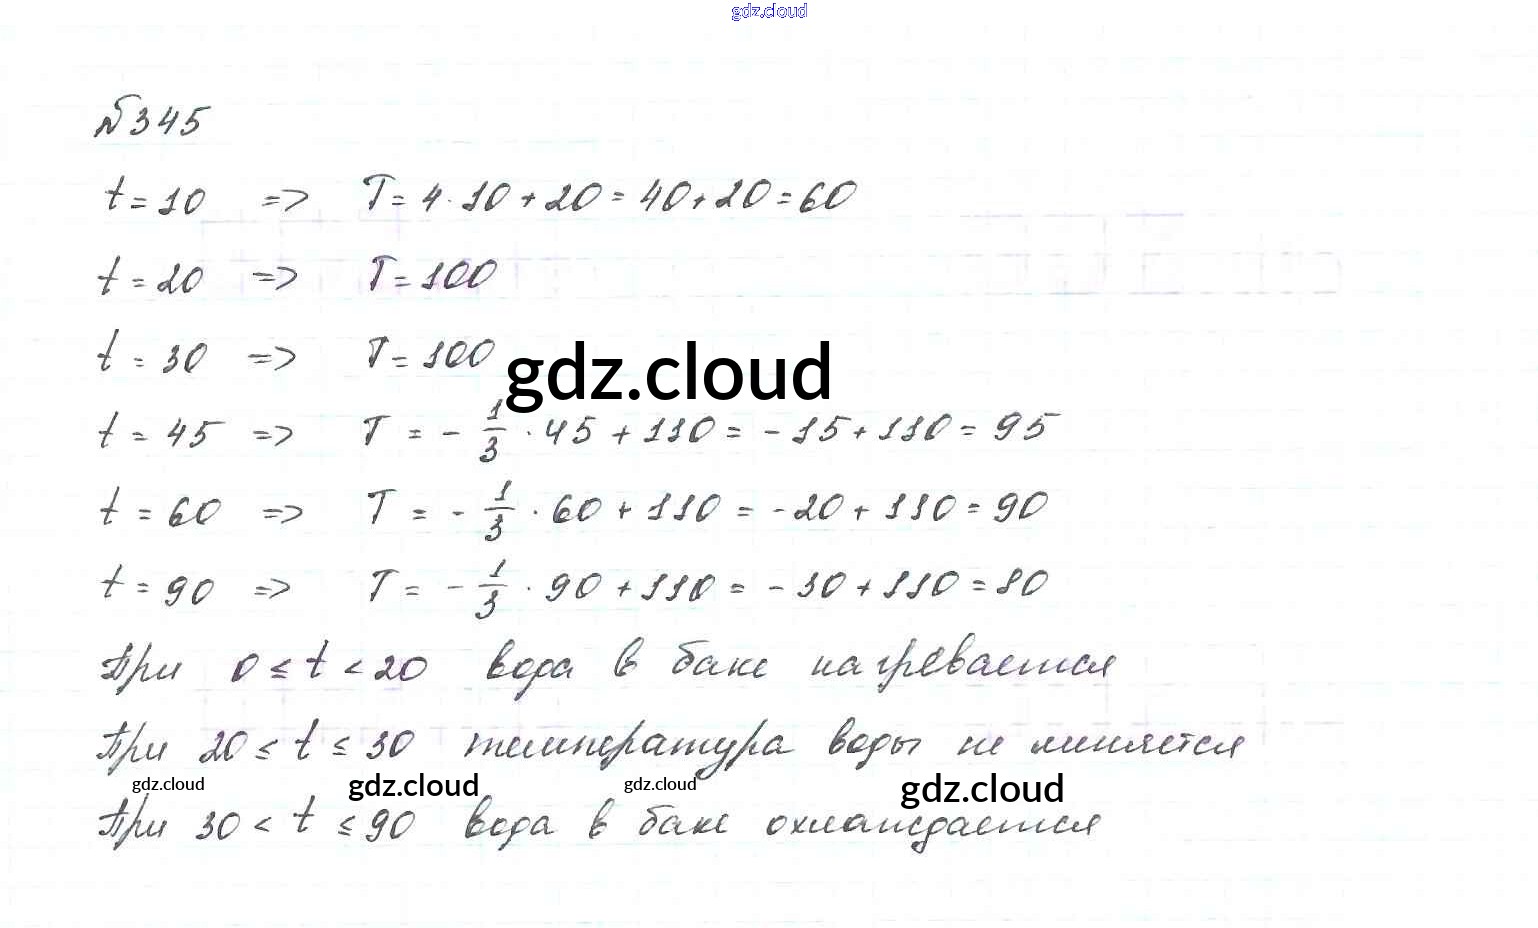 gdz.cloud
№345
t = 10 => T = 4 · 10 + 20 = 40 + 20 = 60
t = 20 => T = 100
t = 30 => T = 100
gdz.cloud
t = 45 => T = - 1/3 · 45 + 110 = - 15 + 110 = 95
t = 60 => T = - 1/3 · 60 + 110 = - 20 + 110 = 90
t = 90 => T = - 1/3 · 90 + 110 = - 30 + 110 = 80
При 0 ≤ t < 20 вода в баке нагревается
При 20 ≤ t ≤ 30 температура воды не меняется
gdz.cloud gdz.cloud gdz.cloud gdz.cloud
При 30 < t ≤ 90 вода в баке охлаждается